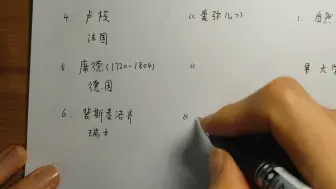 4. 卢梭 《爱弥儿》 1. 自然
法国
5. 康德(1720-1804) 《
德国
6. 裴斯泰洛齐 《
瑞士